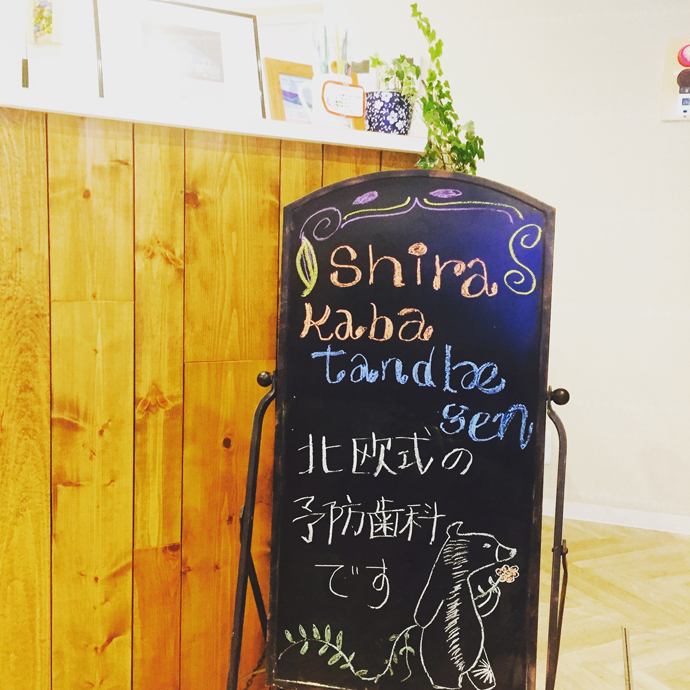 shira
kaba
tandlæ
gen
北欧式の
予防歯科
です